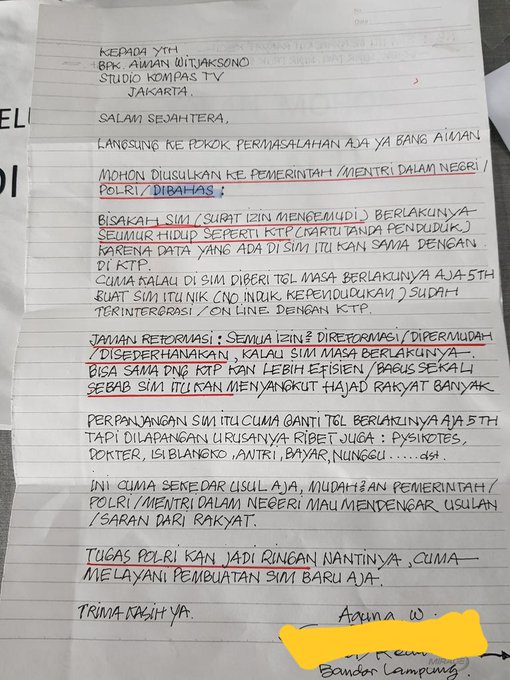 No
Date
KEPADA YTH
BPK. AIMAN WITJAKSONO
STUDIO KOMPAS TV
JAKARTA.
SALAM SEJAHTERA,
LANGSUNG KE POKOK PERMASALAHAN AJA YA BANG AIMAN
MOHON DIUSULKAN KE PEMERINTAH/MENTRI DALAM NEGRI/
POLRI/DIBAHAS :
BISAKAH SIM/SURAT IZIN MENGEMUDI) BERLAKUNYA
SEUMUR HIDUP SEPERTI KTP (KARTU TANDA PENDUDUK)
KARENA DATA YANG ADA DI SIM ITU KAN SAMA DENGAN
DI KTP.
CUMA KALAU DI SIM DIBERI TGL MASA BERLAKUNYA AJA 5TH
BUAT SIM ITU NIK (NO INDUK KEPENDUDUKAN) SUDAH
TERINTERGRASI/ON LINE DENGAN KTP.
JAMAN REFORMASI : SEMUA IZIN2 DIREFORMASI/DIPERMUDAH
/DISEDERHANAKAN, KALAU SIM MASA BERLAKUNYA
BISA SAMA DNG KTP KAN LEBIH EFISIEN/BAGUS SEKALI
SEBAB SIM ITU KAN MENYANGKUT HAJAD RAKYAT BANYAK
PERPANJANGAN SIM ITU CUMA GANTI TGL BERLAKUNYA AJA 5TH
TAPI DILAPANGAN URUSANYA RIBET JUGA : PYSIKOTES,
DOKTER, ISI BLANGKO, ANTRI, BAYAR, NUNGGU ..... dst.
INI CUMA SEKEDAR USUL AJA, MUDAH2AN PEMERINTAH/
POLRI/MENTRI DALAM NEGERI MAU MENDENGAR USULAN
/SARAN DARI RAKYAT.
TUGAS POLRI KAN JADI RINGAN NANTINYA, CUMA
MELAYANI PEMBUATAN SIM BARU AJA.
TRIMA KASIH YA.
Agung W.
Bandar Lampung.